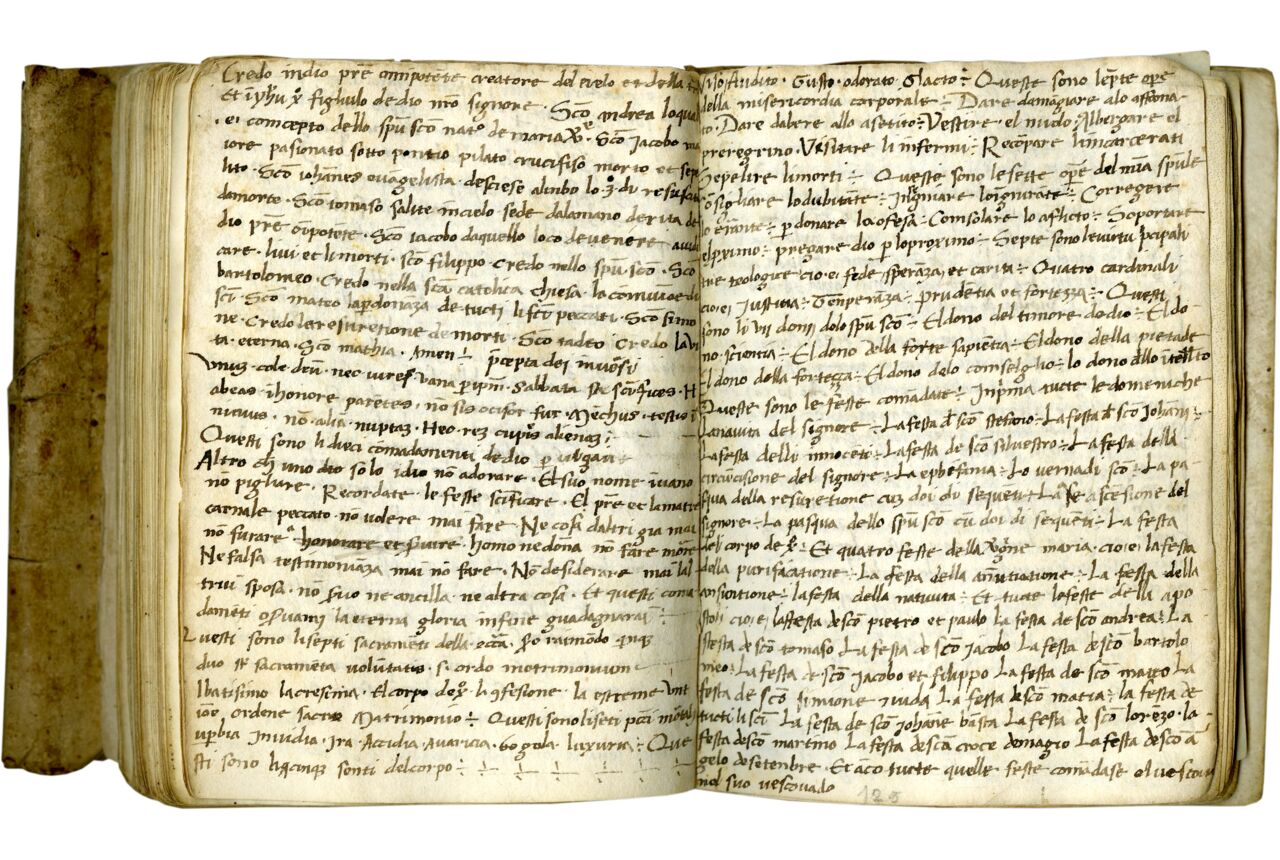 Credo in dio prē omnipotēte creatore del cielo et della
Et i yħu xр̄o figliulo de dio nrō signore · Scō andrea lo qual
· ei comcepto dello spū scō nat° de maria · Scō Jacobo ma
iore pasionato sotto pontio pilato crucifiso morto et sepe
lito · Scō iohānes evāgelista · desciese alinbo lo 3° di resuscit
da morto · Scō tomaso salite in cielo sede dala mano derita de
dio prē oīpotēte · Scō iacobo da quello loco de venere
care · livi · et li morti · scō filippo · Credo nello spū scō · Scō
bartolomeo · Credo nella scā catolica chiesa · la comuniōe di
scī · Scō mateo la perdonāza de tucti li peccati · Scō simo
ne · Credo la resuretione de morti · Scō tadeo Credo la vi
ta · eterna · Scō mathia · Amen ÷ p̄cepta dei
Unuz · cole deū · nec iures vana p ip̄m · Sabbata scīfices · H
abeas ī honore parētes · nō sis ocisor fur · Mechus · testis ī
nicuus · nō alia nuptaz · Heo rez cupi's alienaz ;
Questi sono li dieci comādamenti de dio p vulgari
Altro ch' uno dio solo idio nō adorare · El suo nome ī vano
nō pigliare · Recordate · le feste scīficare · El prē et la matre
carnale peccato · nō volere mai fare · Ne cosi d altri gia mai
nō furare · honorare et s'vire · homo ne dōna nō fare morire
Ne falsa testimoniāza mai nō fare · Nō desiderare mai l al
trui sposa · nō s'vo ne ancilla · ne altra cosa · Et questi comā
damēti os'vami la eterna gloria in fine guadagnarai ÷
Questi sono li septi sacramēti della ecca · raimōdo quinque
duo sacramēta volūtatis · s· ordo motrimonium
lbatisimo la cresima · El corpo de xр̄o · li 9fesione · la estreme unt
iōe ordene sacro Matrimonio ÷ Questi sono li seti pcci mortali
uperbia Invidia · Ira · Acidia · Avaricia · gola · luxuria ÷ Que
sti sono li cinque senti del corpo ÷
Viso Audito · Gusto · odorato · Tacto ÷ Queste sono le septe ope
della misericordia corporale ÷ Dare da magiare alo affama
to · Dare da bere allo asetito ÷ Vestire · el nudo · Albergare el
preregrino · Visitare li infermi · Recōpare li incarcerati
Sepelire li morti ÷ Queste sono le sette opē del mīa spule
cōsigliare lo dubitāte ÷ Insigniare lo ignurāte ÷ Corregere
lo erante ÷ p donare la ofesa · Comsolare lo aflicto ÷ Soportare
el prximo ÷ pregare dio p lo proximo ÷ Septe sono le virtu pcipali
tre teologice cio ei fede speraza, et carita ÷ Quatro cardinali
cio ei Justitia ÷ Temperāza ÷ prudētia et fortezza ÷ Questi
sono li VII doni dolo spū scō ÷ El dono del timore de dio ÷ El do
no · scientia ÷ El dono della forte sapientia ÷ El dono della pietade
El dono della fortezza ÷ El dono delo comseglio ÷ lo dono dello itelletto
Queste sono le feste comādate ÷ In p̄ma tucte le domeniche
La nativita del signore ÷ La festa d scō stefano ÷ La festa d scō Johani ÷
La festa delli innocēti ÷ La festa de scō silvestro ÷ La festa della
circūcisione del signore ÷ La ephefania ÷ Lo vernadi scō ÷ La pa
squa della resuretione cuz doi di sequeti ÷ La ascēsione del
signore ÷ La pasqua dello spū scō cū doi di sequēti ÷ La festa
del corpo de xр̄o ÷ Et quatro feste della v'gine maria · cio ei la festa
della purificatione ÷ La festa della anūtiatione ÷ La festa della
assūtione ÷ la festa della nativita ÷ Et tucte le feste della apo
stoli cio ei la festa de scō pietro et paulo La festa de scō andrea ÷ La
festa de scō tomaso La festa de scō Jacobo La festa de scō bartolo
meo ÷ La festa de scō Jacobo et filippo La festa de scō mateo La
festa de scō simione et iuda La festa de scō matia ÷ la festa de
tucti li sci La festa de scō Johāne batista La festa de scō lorēzo · la
festa de scō martino La festa de scā croce de magio La festa de scō ā
gelo de setenbre Et āco tucte quelle feste comādase el vescovo
nel suo vescovado
123